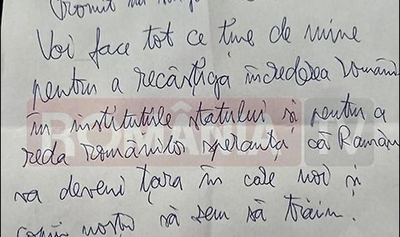 Promit
Voi face tot ce ține de mine
pentru a recâștiga încrederea români
în instituțiile statului și pentru a
reda românilor speranța, că Român
va deveni țara în care noi și
copiii noștri să vrem să trăim.
ROMÂNIA TV